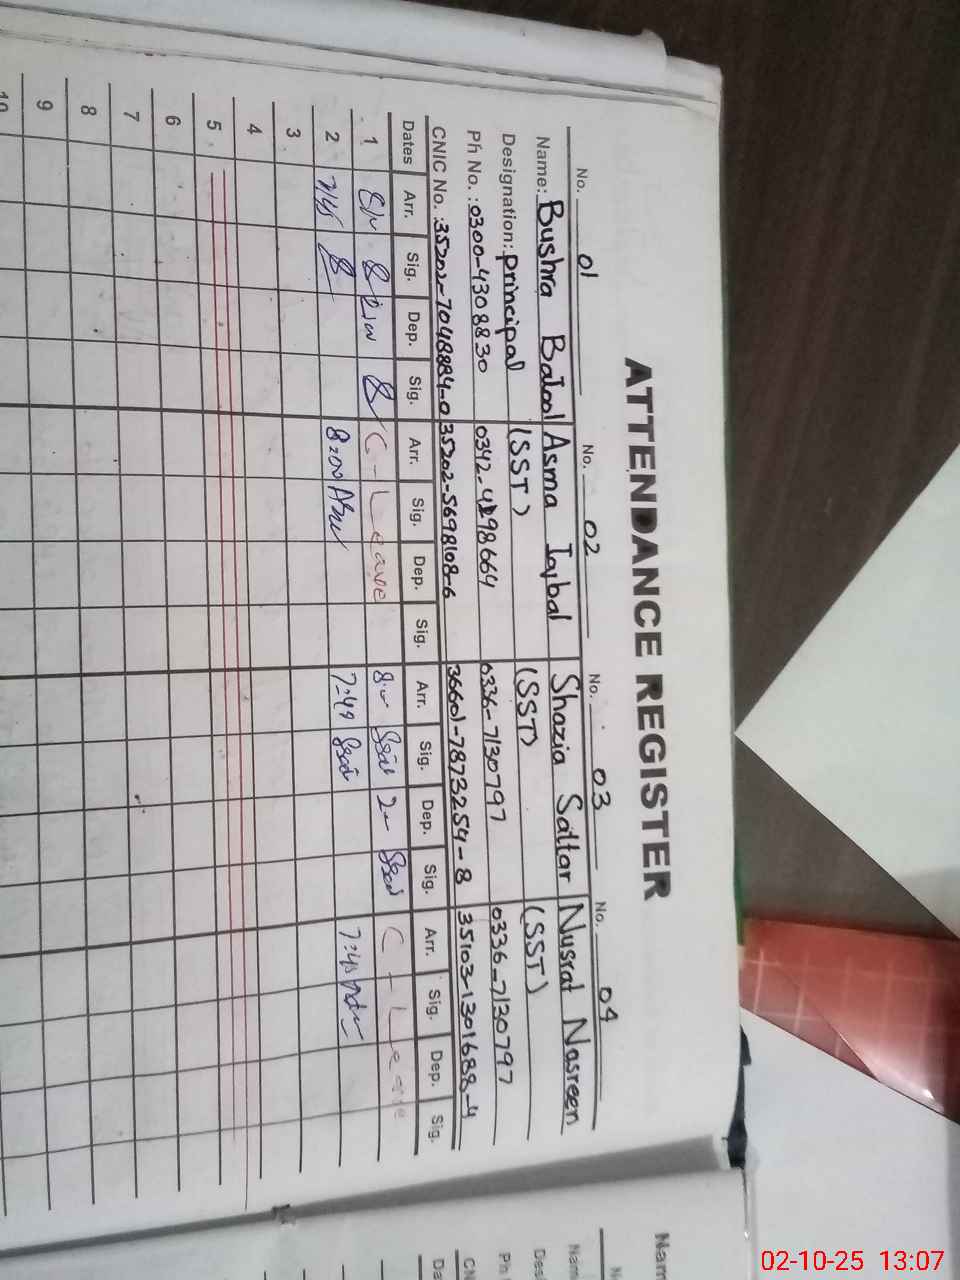 ATTENDANCE REGISTER
No. 01 No. 02 No. 03 No. 04
Name: Bushra Batool Asma Iqbal Shazia Sattar Nusrat Nasreen
Designation: principal (SST) (SST) (SST)
Ph No.: 0300-4308830 0342-4198664 0336-7130797 0336-7130797
CNIC No.: 35202-7048884-0 35202-5698108-6 36601-7873254-8 35103-1301688-4
Dates Arr. Sig. Dep. Sig. Arr. Sig. Dep. Sig. Arr. Sig. Dep. Sig. Arr. Sig. Dep. Sig.
1 C-Leave C-Leave
2 7:45 8:00 7:49 7:45
3
4
5
6
7
8
9
10
Nam
N
Nam
Desi
Ph
CN
Da
02-10-25 13:07